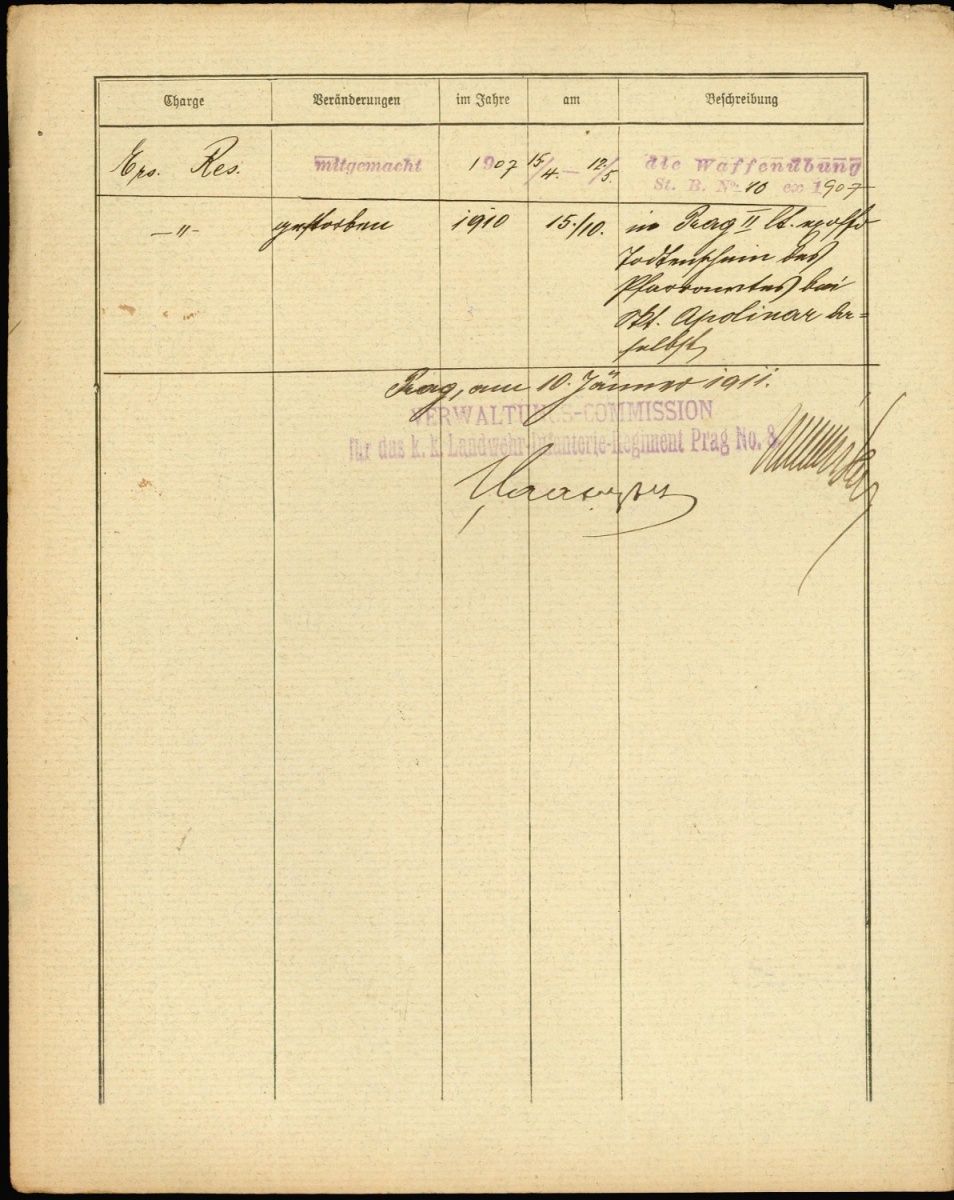 Charge Veränderungen im Jahre am Beschreibung
Ers. Res. mitgemacht 1907 15/4. – 12/5. die Waffenübung
St. B. No. 10 ex 1907
–〃– gestorben 1910 15./10. in Prag II lt.
Todtenschein des
Pfarramtes bei
Skt. Apolinar da=
selbst
Prag, am 10. Jänner 1911.
VERWALTUNGS-COMMISSION
für das k. k. Landwehr-Infanterie-Regiment Prag No. 8.